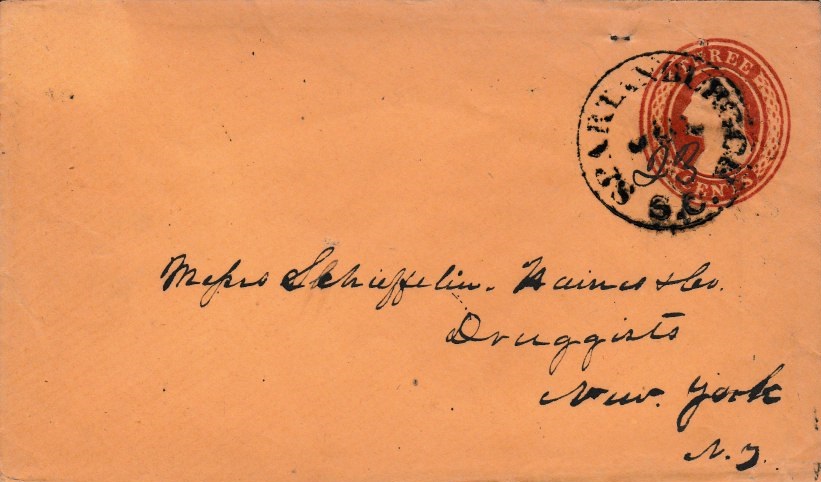 THREE
CENTS
SPARTANBURGH C.H.
JUL
23
S.C.
Messrs Schieffelin. Haines & Co.
Druggists
New. York
N. Y.